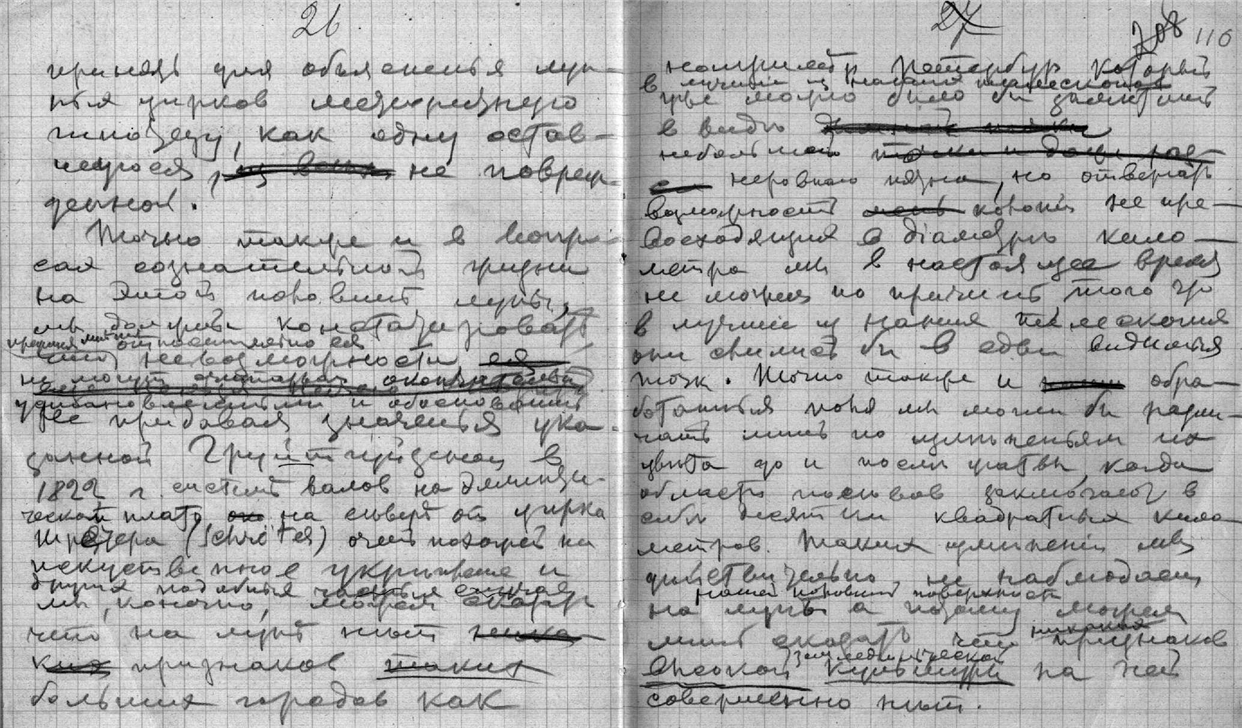 26
принять для объясненья лун-
ных цирков
гипотезу, как одну остав-
шуюся, не повреж-
денной.
Точно также и в вопро-
сах сознательной жизни
на этой половине луны,
мы должны констатировать
невозможности
не придавая значенья ука-
занной Груйтуйзеном в
1822 г. системе валов на эллипти-
ческом плато на север от цирка
Шрётера (Schröter) очень похожей на
искуственное укрепление и
другия подобныя частные случая
мы, конечно, можем сказать
что на луне нет
признаков таких
больших городов как
27 708 116
например Петербург который
в лучшие из наших телескопов
уже можно было бы заметить
в виде
небольшого
неровного пятна, но отвергать
возможность колоний не пре-
восходящих в діаметре кило-
метра мы в настоящее время
не можем по причине того что
в лучшие из наших телескопов
они явились бы в едва видимых
точк. Точно также и обра-
ботанныя поля мы могли бы разли-
чать лишь по измененьям их
цвета до и после жатвы когда
область посевов заключает в
себе десятки квадратных кило-
метров. Таких изменений мы
действительно, не наблюдаем
на нашей половине поверхности
луны а потому можем
лишь сказать что никаких признаков
высокой земледельческой культуры на ней
совершенно нет.